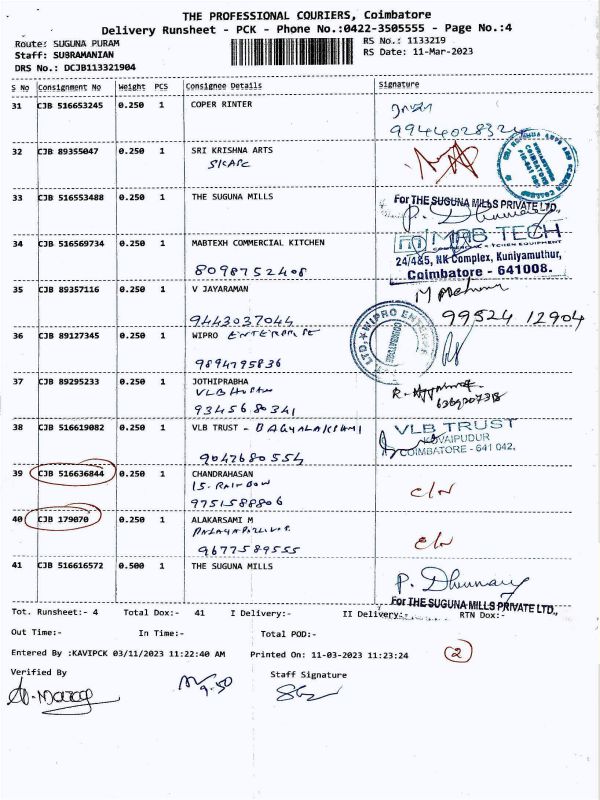 THE PROFESSIONAL COURIERS, Coimbatore
Delivery Runsheet - PCK - Phone No.:0422-3505555 - Page No.:4
Route: SUGUNA PURAM
RS No.: 1133219
Staff: SUBRAMANIAN
RS Date: 11-Mar-2023
DRS No.: DCJB113321904
S No Consignment No Weight PCS Consignee Details Signature
31 CJB 516653245 0.250 1 COPER RINTER
9944028324
32 CJB 89355047 0.250 1 SRI KRISHNA ARTS
SKASC
33 CJB 516553488 0.250 1 THE SUGUNA MILLS
For THE SUGUNA MILLS PRIVATE LTD.,
34 CJB 516569734 0.250 1 MABTEXH COMMERCIAL KITCHEN
MAB TECH
8098752408
24/4&5, NK Complex, Kuniyamuthur,
Coimbatore - 641008.
35 CJB 89357116 0.250 1 V JAYARAMAN
9443037044
99524 12904
36 CJB 89127345 0.250 1 WIPRO ENTERPRISE
9894795836
WIPRO ENTERPRISES
COIMBATORE
37 CJB 89295233 0.250 1 JOTHIPRABHA
9345680341
38 CJB 516619082 0.250 1 VLB TRUST - BAGYALAKSHMI
VLB TRUST
KOVAIPUDUR
COIMBATORE - 641 042.
9042680554
39 CJB 516636844 0.250 1 CHANDRAHASAN
15. RAINBOW
9751588806
40 CJB 179070 0.250 1 ALAKARSAMI M
9677589555
41 CJB 516616572 0.500 1 THE SUGUNA MILLS
For THE SUGUNA MILLS PRIVATE LTD.,
Tot. Runsheet:- 4 Total Dox:- 41 I Delivery:- II Delivery:- RTN Dox:-
Out Time:- In Time:- Total POD:-
Entered By :KAVIPCK 03/11/2023 11:22:40 AM Printed On: 11-03-2023 11:23:24
2
Verified By
Staff Signature
9.50